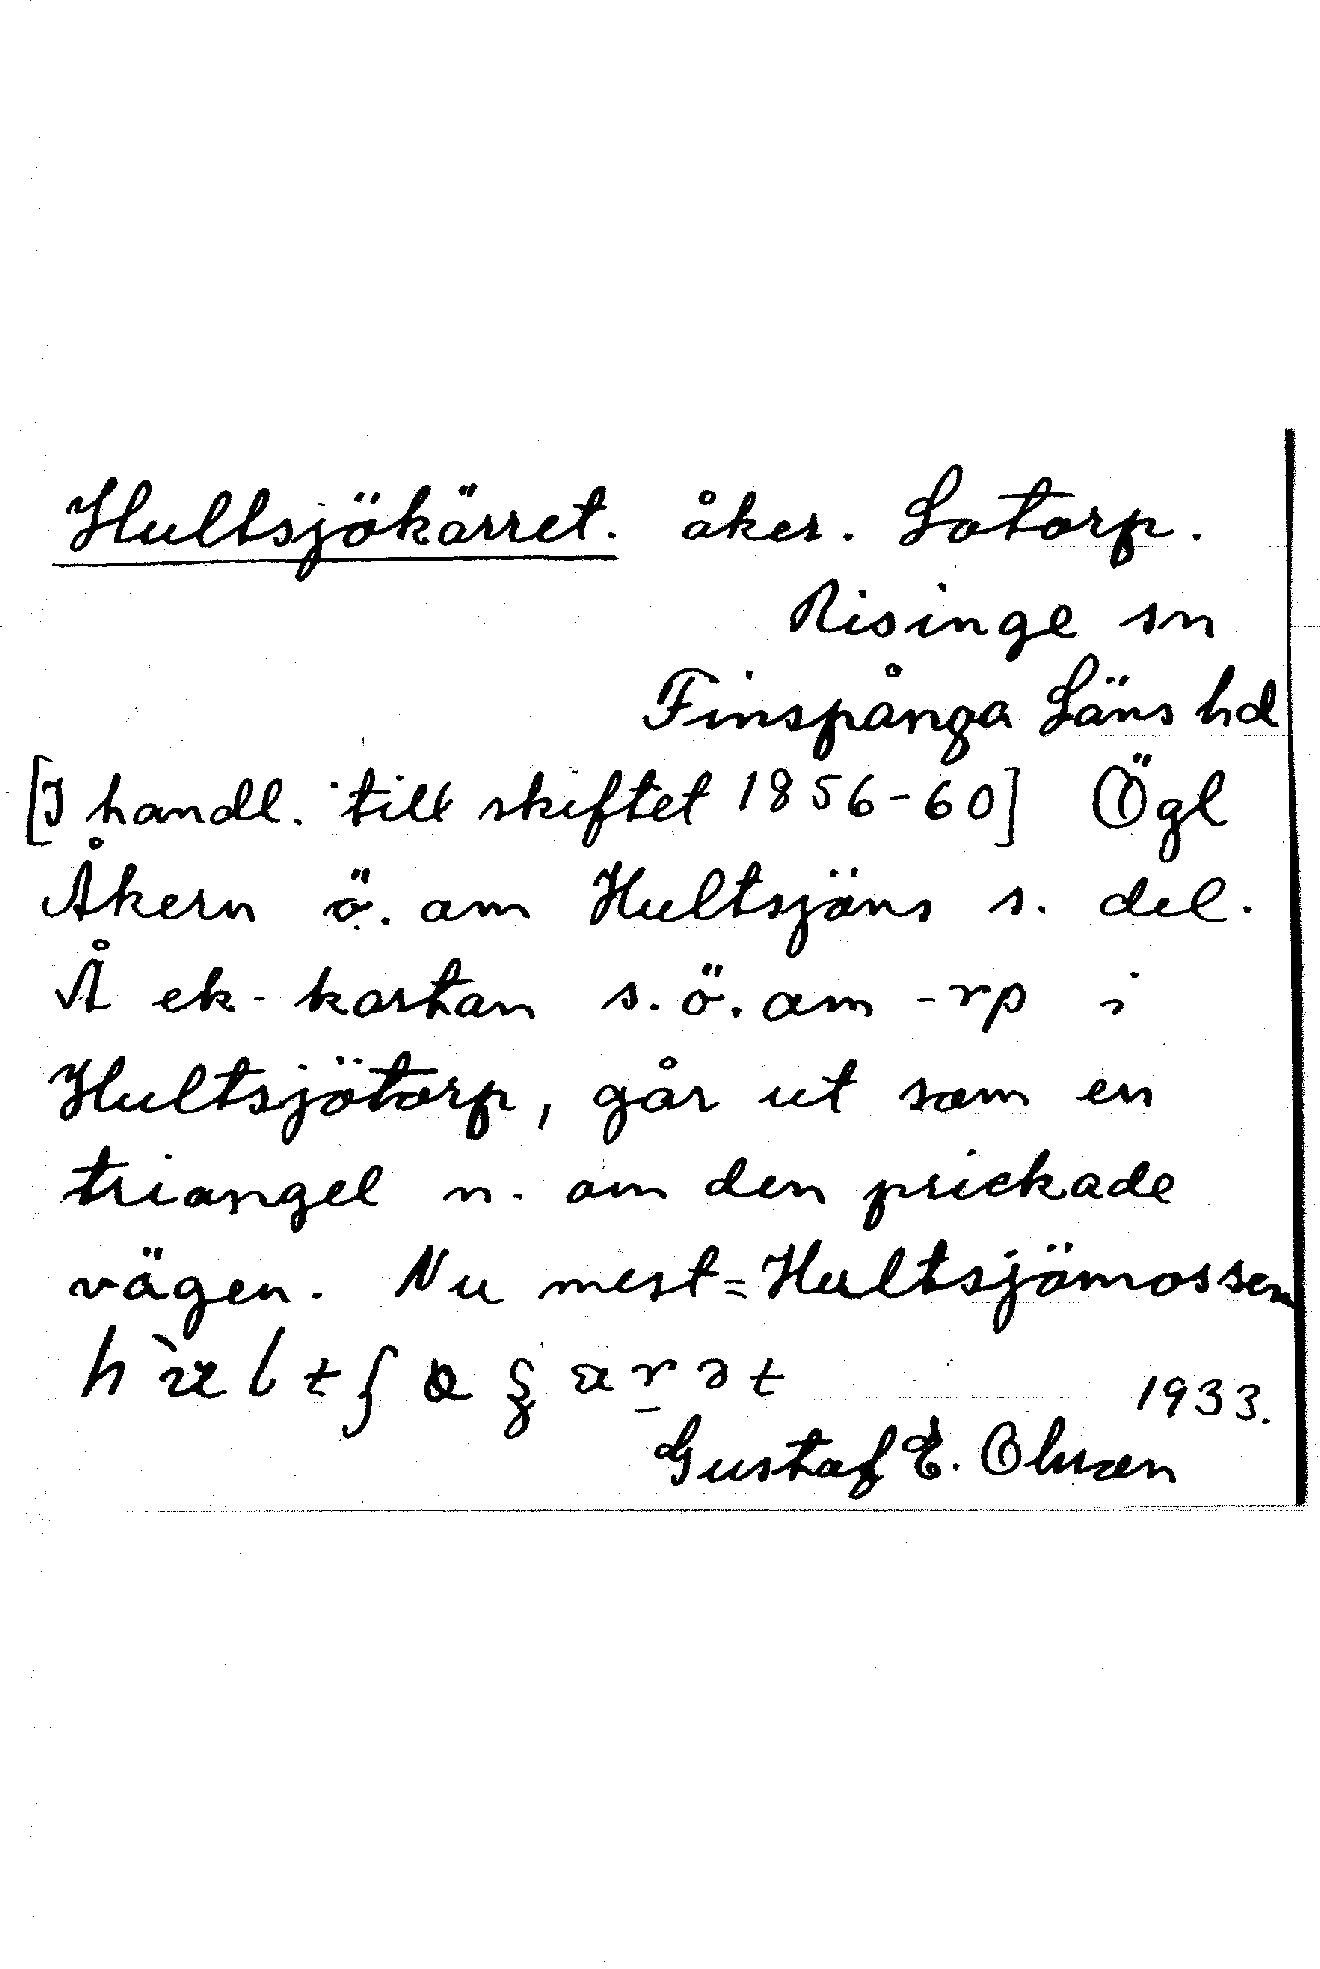 Hultsjökärret. åker. Lotorp.
Risinge sn
Finspånga Läns hd
[I handl. till skiftet 1856-60] Ögl
Åkern ö. om Hultsjöns s. del.
Å ek-kartan s.ö. om -rp i
Hultsjötorp, går ut som en
triangel n. om den prickade
vägen. Nu mest = Hultsjömossen
1933.
Gustaf E. Olsson